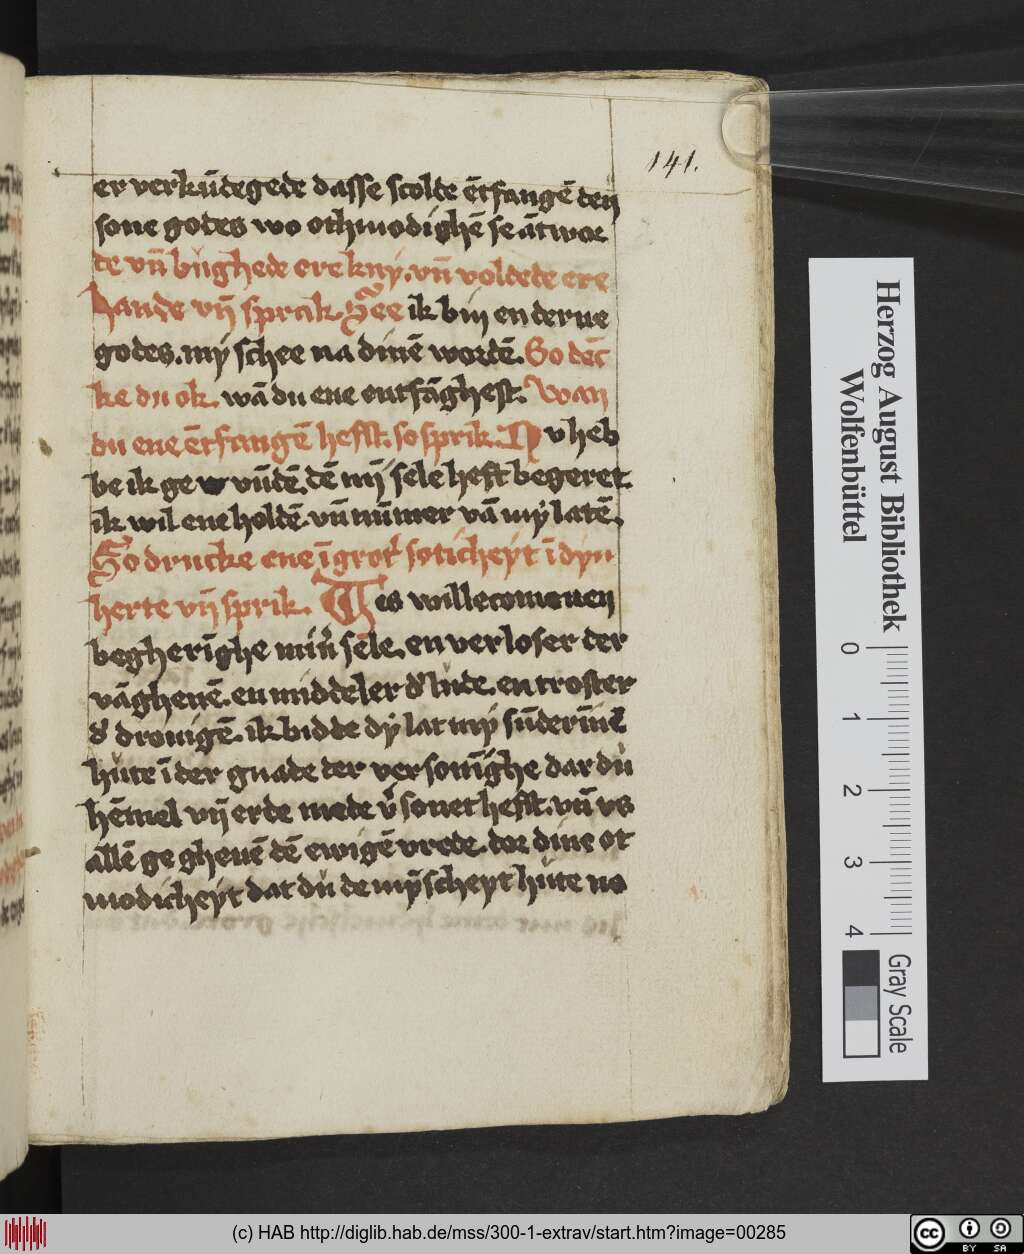 141.
er verkūdegede dasse scolde ētfangē den
sone godes wo othmodighē se ātwor
de vn̄ bůghede ere knÿ. vn̄ voldede ere
hande vn̄ sprak. See ik bin en derne
godes. mÿ schee na dinē wordē. So dēc
ke du ok. wā du ene entfāghest. Wan
du ene ētfangē hefst. so sprik. Nu heb
be ik ge vūdē. dē mÿ sele heft begeret.
ik wil ene holdē. vn̄ nūmer vā mÿ latē.
So drucke ene ī grot' soticheÿt ī dÿn
herte vn̄ sprik. Wes willecomenen
begherīghe min' sele. en verloser der
vāghenē. en middeler d' lůde. en troster
d' drouigē. ik bidde dÿ lat mÿ sūder īne
hůte ī der gnade der versonīghe dar dů
hēmel vn̄ erde mede v' sonet hefst. vn̄ vs
allē ge gheuē dē ewigē vrede. dor dine ot
modicheÿt dat dů de mÿscheyt hůte no
Herzog August Bibliothek
Wolfenbüttel
0 1 2 3 4
Gray Scale
(c) HAB http://diglib.hab.de/mss/300-1-extrav/start.htm?image=00285
cc BY SA